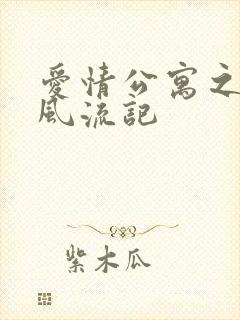 愛情公寓之
風流記
紫木瓜